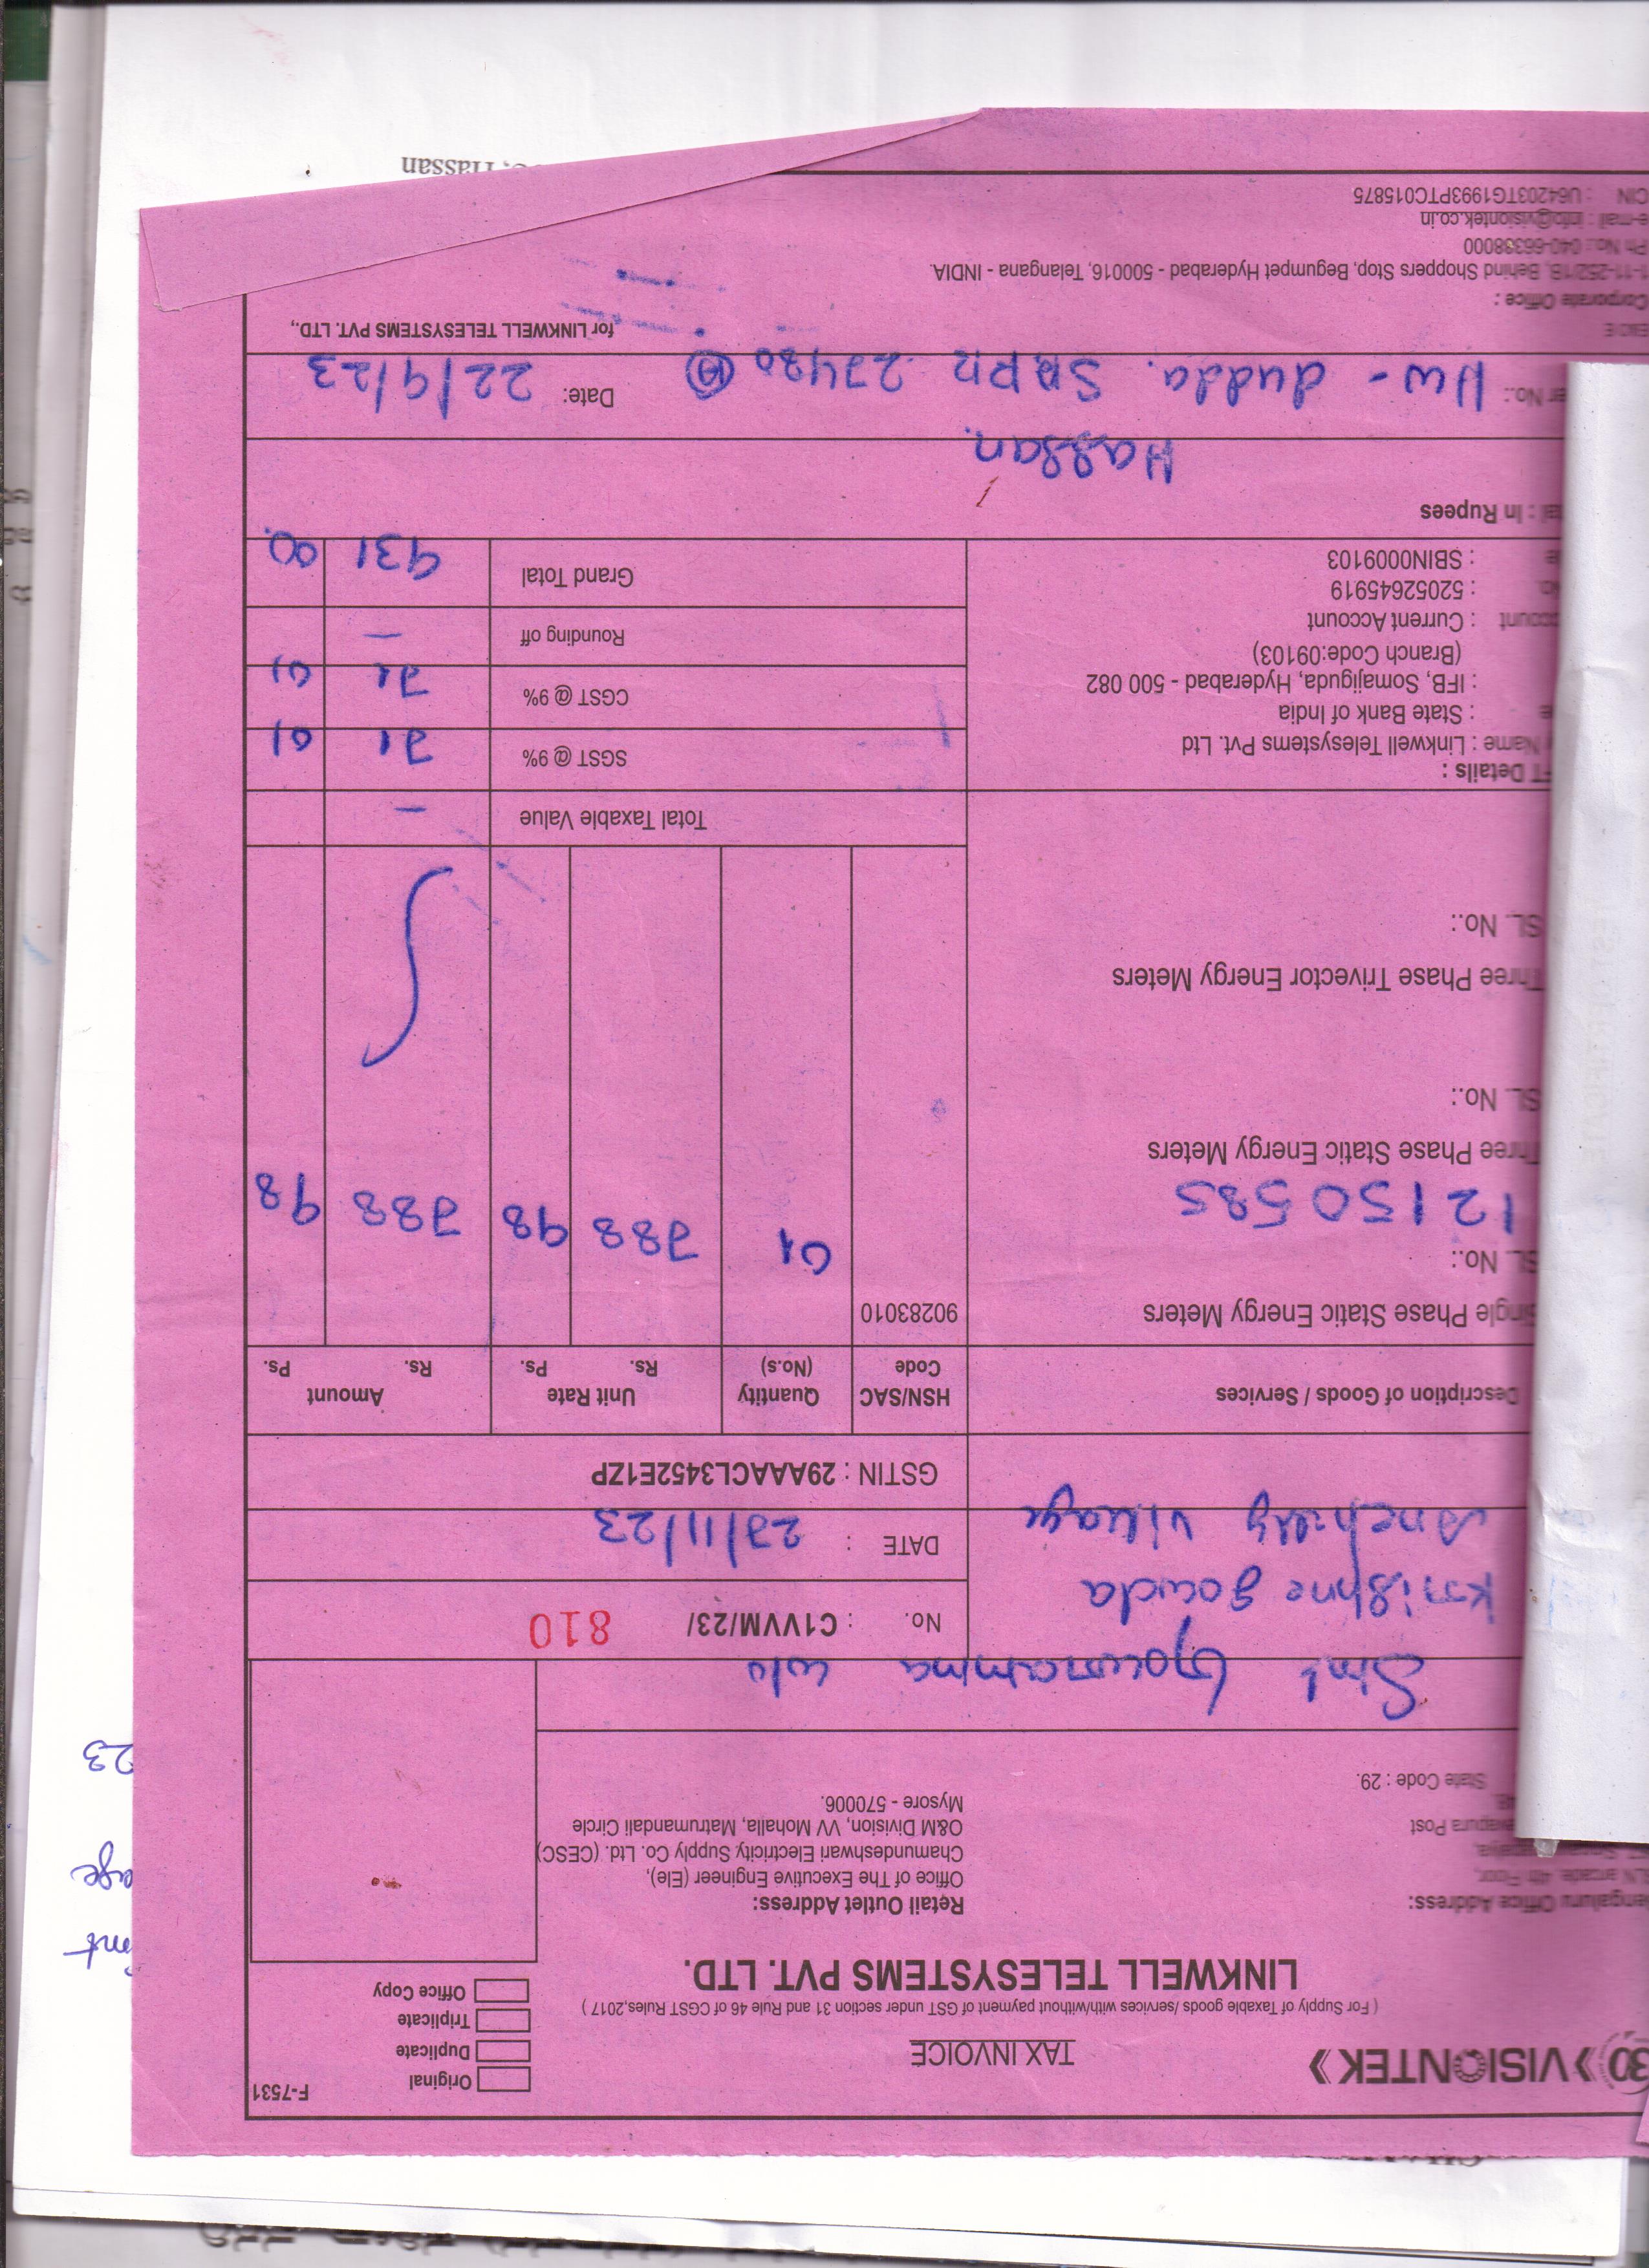 VISIONTEK
TAX INVOICE
( For Supply of Taxable goods /services with/without payment of GST under section 31 and Rule 46 of CGST Rules,2017 )
LINKWELL TELESYSTEMS PVT. LTD.
F-7531
Original
Duplicate
Triplicate
Office Copy
Office Address:
4th Floor,
Post
State Code : 29.
Retail Outlet Address:
Office of The Executive Engineer (Ele),
Chamundeshwari Electricity Supply Co. Ltd. (CESC)
O&M Division, VV Mohalla, Matrumandali Circle
Mysore - 570006.
Smt Gowramma w/o
Krishne gowda
village
No. : C1VVM/23/ 810
DATE : 27/11/23
GSTIN : 29AAACL3452E1ZP
Description of Goods / Services
HSN/SAC Code
Quantity (No.s)
Unit Rate Rs. Ps.
Amount Rs. Ps.
Single Phase Static Energy Meters 90283010
SL. No.: 01 788 98 788 98
12150585
Three Phase Static Energy Meters
SL. No.:
Three Phase Trivector Energy Meters
SL. No.:
Total Taxable Value –
Details :
Name : Linkwell Telesystems Pvt. Ltd
: State Bank of India
: IFB, Somajiguda, Hyderabad - 500 082
(Branch Code:09103)
: Current Account
: 52052645919
: SBIN0009103
SGST @ 9% 71 01
CGST @ 9% 71 01
Rounding off –
Grand Total 931 00
In Rupees
Hassan.
No.: dudda. 27480 Date: 22/9/23
for LINKWELL TELESYSTEMS PVT. LTD.,
Corporate Office :
1-11-252/1B, Behind Shoppers Stop, Begumpet Hyderabad - 500016, Telangana - INDIA.
Ph No.: 040-66388000
e-mail : info@visiontek.co.in
CIN : U64203TG1993PTC015875
Hassan
23